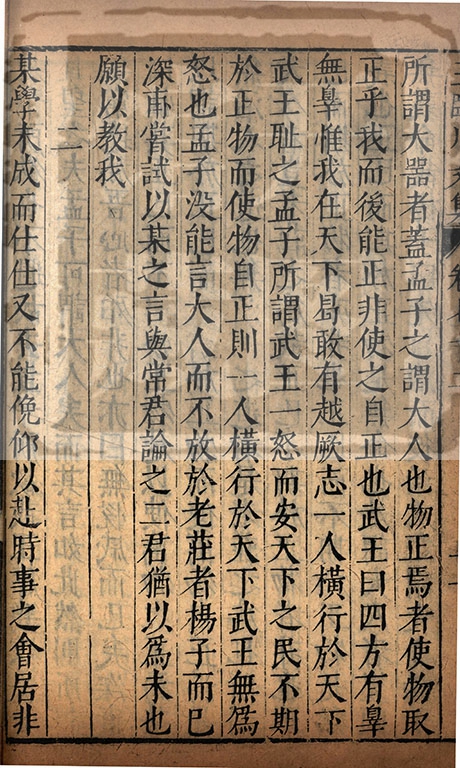 所謂大器者蓋孟子之謂大人也物正焉者使物取
正乎我而後能正非使之自正也武王曰四方有辠
無辠惟我在天下曷敢有越厥志一人橫行於天下
武王恥之孟子所謂武王一怒而安天下之民不期
於正物而使物自正則一人橫行於天下武王無爲
怒也孟子没能言大人而不放於老莊者楊子而已
深甫嘗試以某之言與常君論之二君猶以爲未也
願以教我
二
某學未成而仕仕又不能俛仰以赴時事之會居非